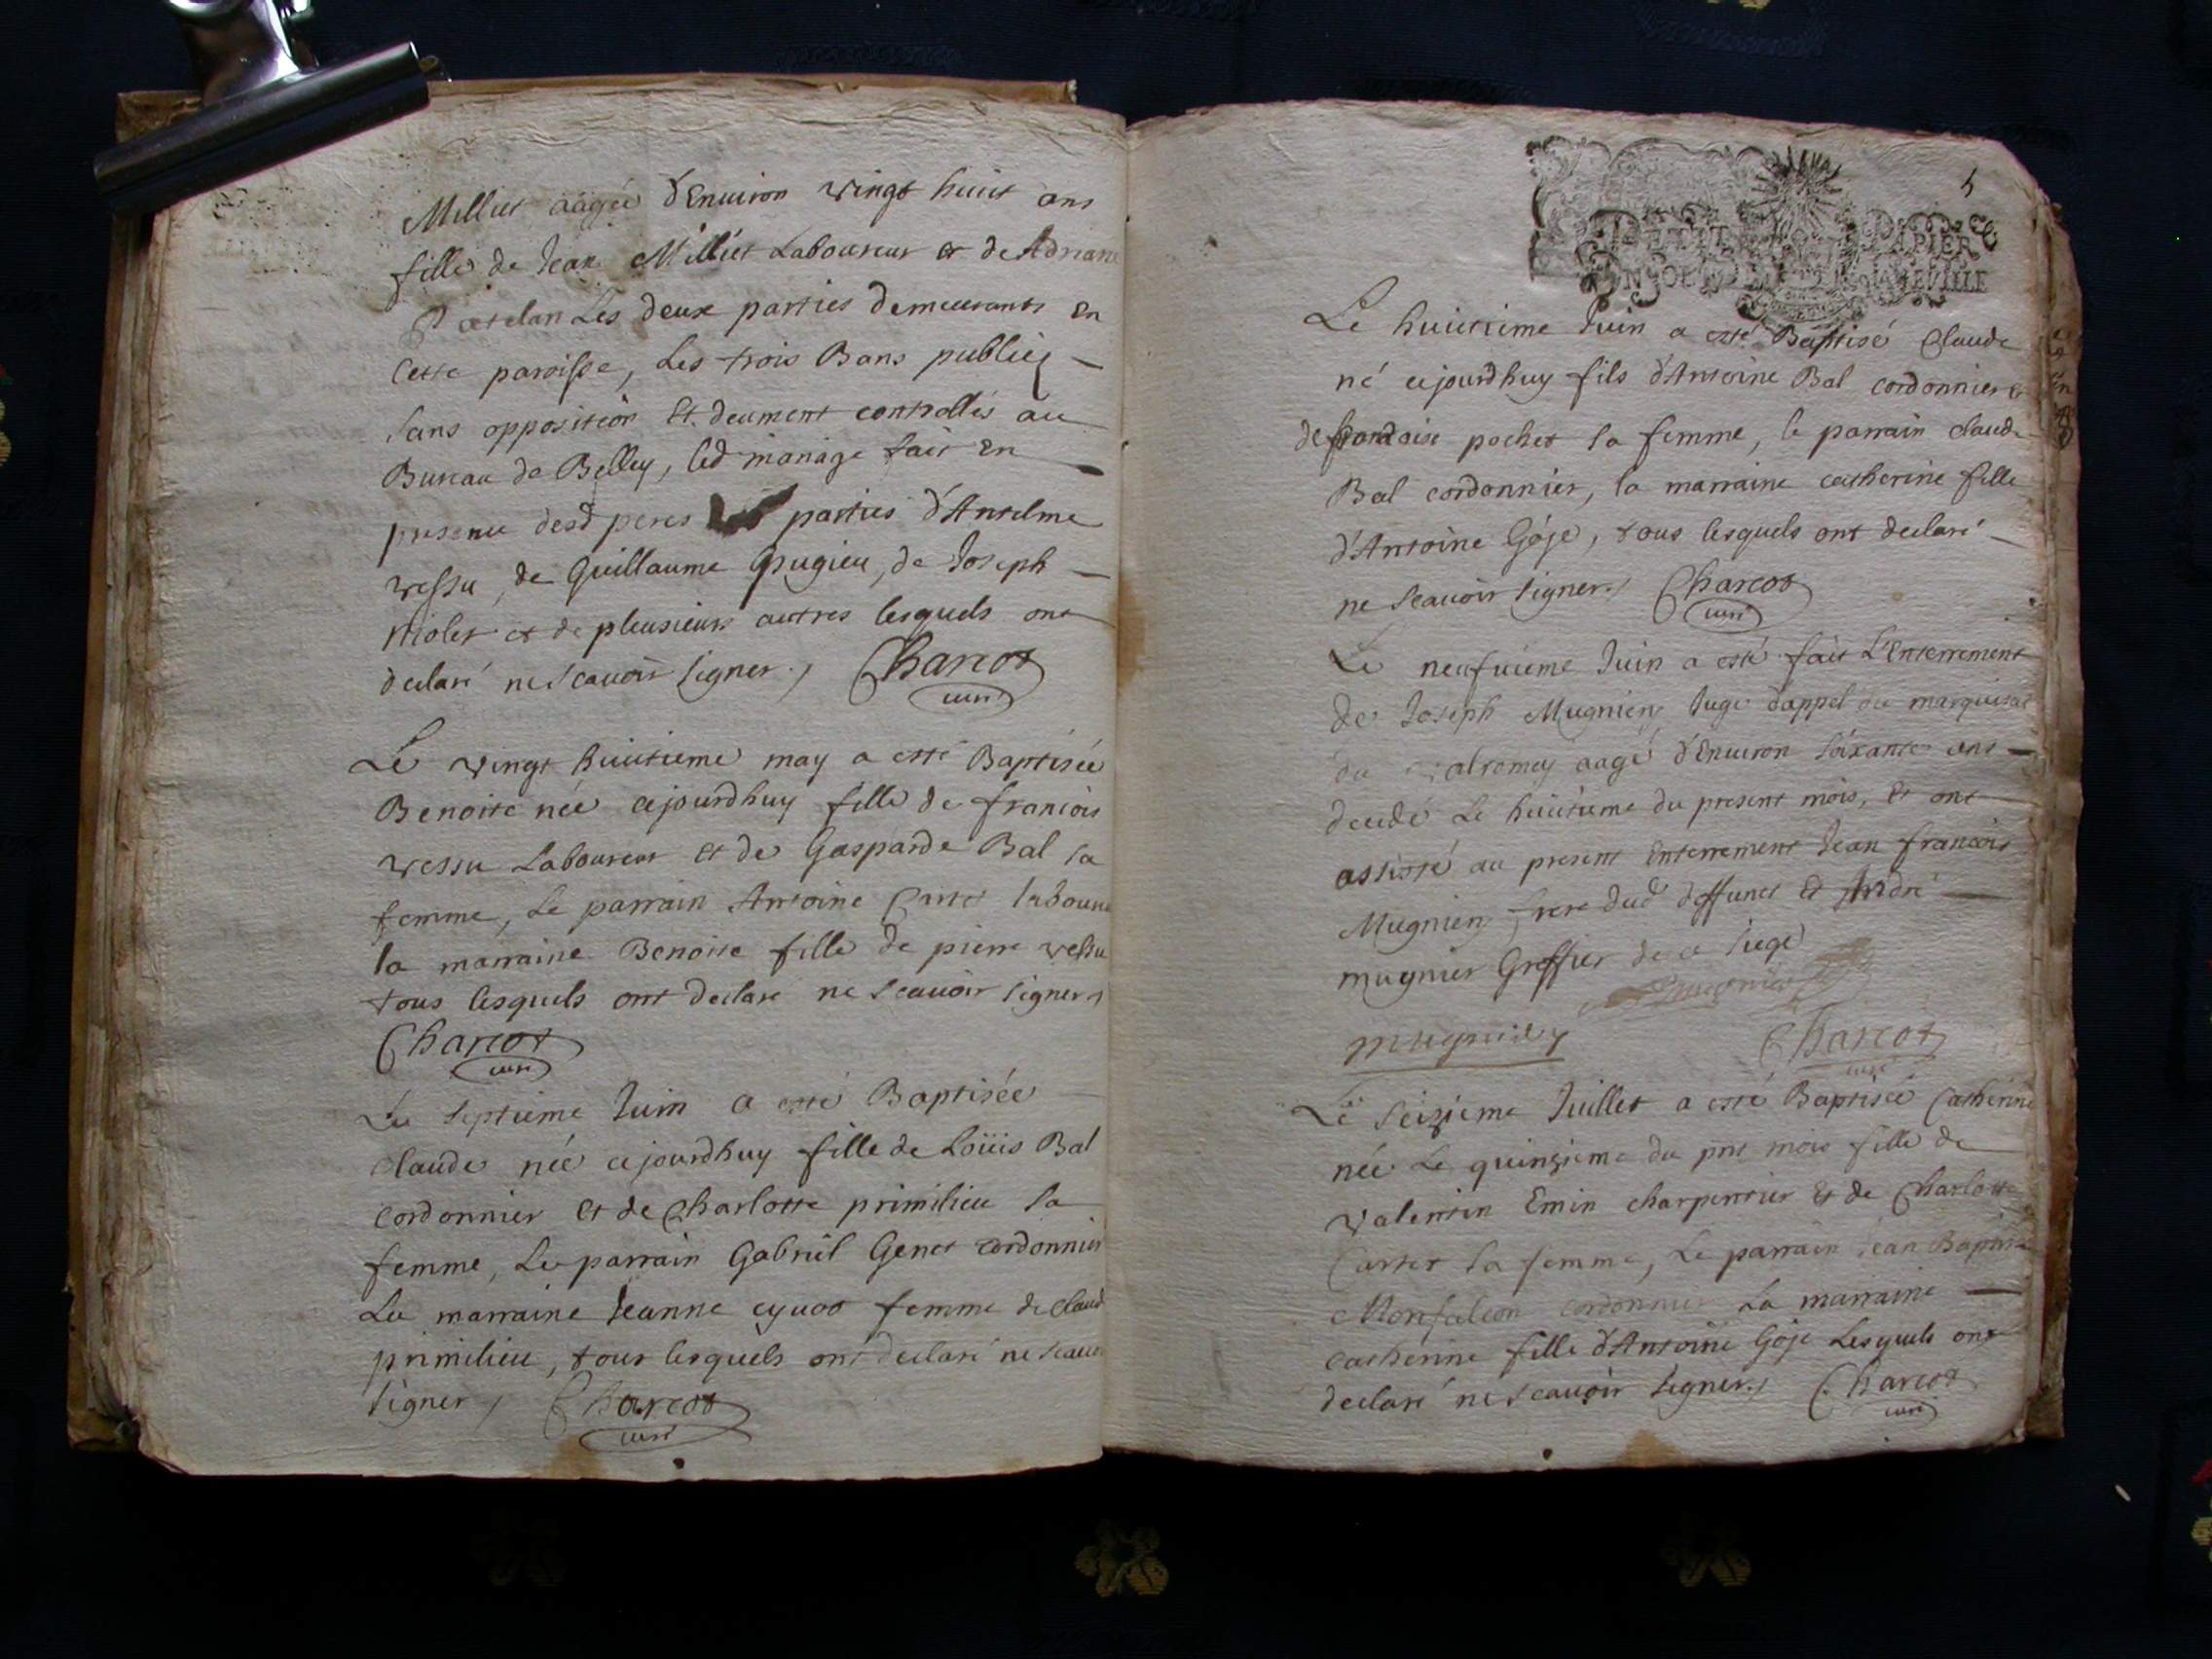 Milliet aagée d'Environ vingt huit ans
fille de Jean Milliet Laboureur et de Adriane
Les deux parties demeurants En
cette paroisse, Les trois Bans publiez
sans opposition Et deument controllés au
Bureau de Belley, led mariage fait En
presence desd peres parties d'Antelme
vessu, de Guillaume Gugieu, de Joseph
violet et de pleusieurs autres lesquels ont
declaré ne scauoir signer. Charcot
curé
Le vingt huitieme may a esté Baptisée
Benoite née cejourdhuy fille de francois
vessu Laboureur et de Gasparde Bal sa
femme, Le parrain Antoine Carret laboureur
la marraine Benoite fille de pierre vessu
tous lesquels ont declaré ne scauoir signer
Charcot
curé
Le septieme Juin a esté Baptisée
Claude née cejourdhuy fille de Loüis Bal
cordonnier Et de Charlotte primilieu sa
femme, Le parrain Gabriel Genet cordonnier
La marraine Jeanne cyuot femme de Claude
primilieu, tous lesquels ont declaré ne scauoir
signer, Charcot
curé
5
PETIT PAPIER
Le huitieme Juin a esté Baptisé Claude
né cejourdhuy fils d'Antoine Bal cordonnier &
de francoise pochet sa femme, le parrain claude
Bal cordonnier, la marraine catherine fille
d'Antoine Goje, tous lesquels ont declaré
ne scauoir signer. Charcot
curé
Le neufuieme Juin a esté fait L'Enterrement
de Joseph Mugnier Juge dappel du marquisat
du valromey aagé d'Enuiron soixante ans
decedé Le huitieme du present mois, Et ont
assisté au present Enterrement Jean francois
Mugnier frere dud deffunct Et André
mugnier Greffier de ce siege
Mugnier
mugnier Charcot
curé
Le seizieme Juillet a esté Baptisée Catherine
née Le quinzieme du pnt mois fille de
valentin Emin charpentier Et de Charlotte
Carret sa femme, Le parrain Jean Baptiste
Monfalcon cordonnier La marraine
catherine fille d'Antoine Goje Lesquels ont
declaré ne scauoir signer. Charcot
curé